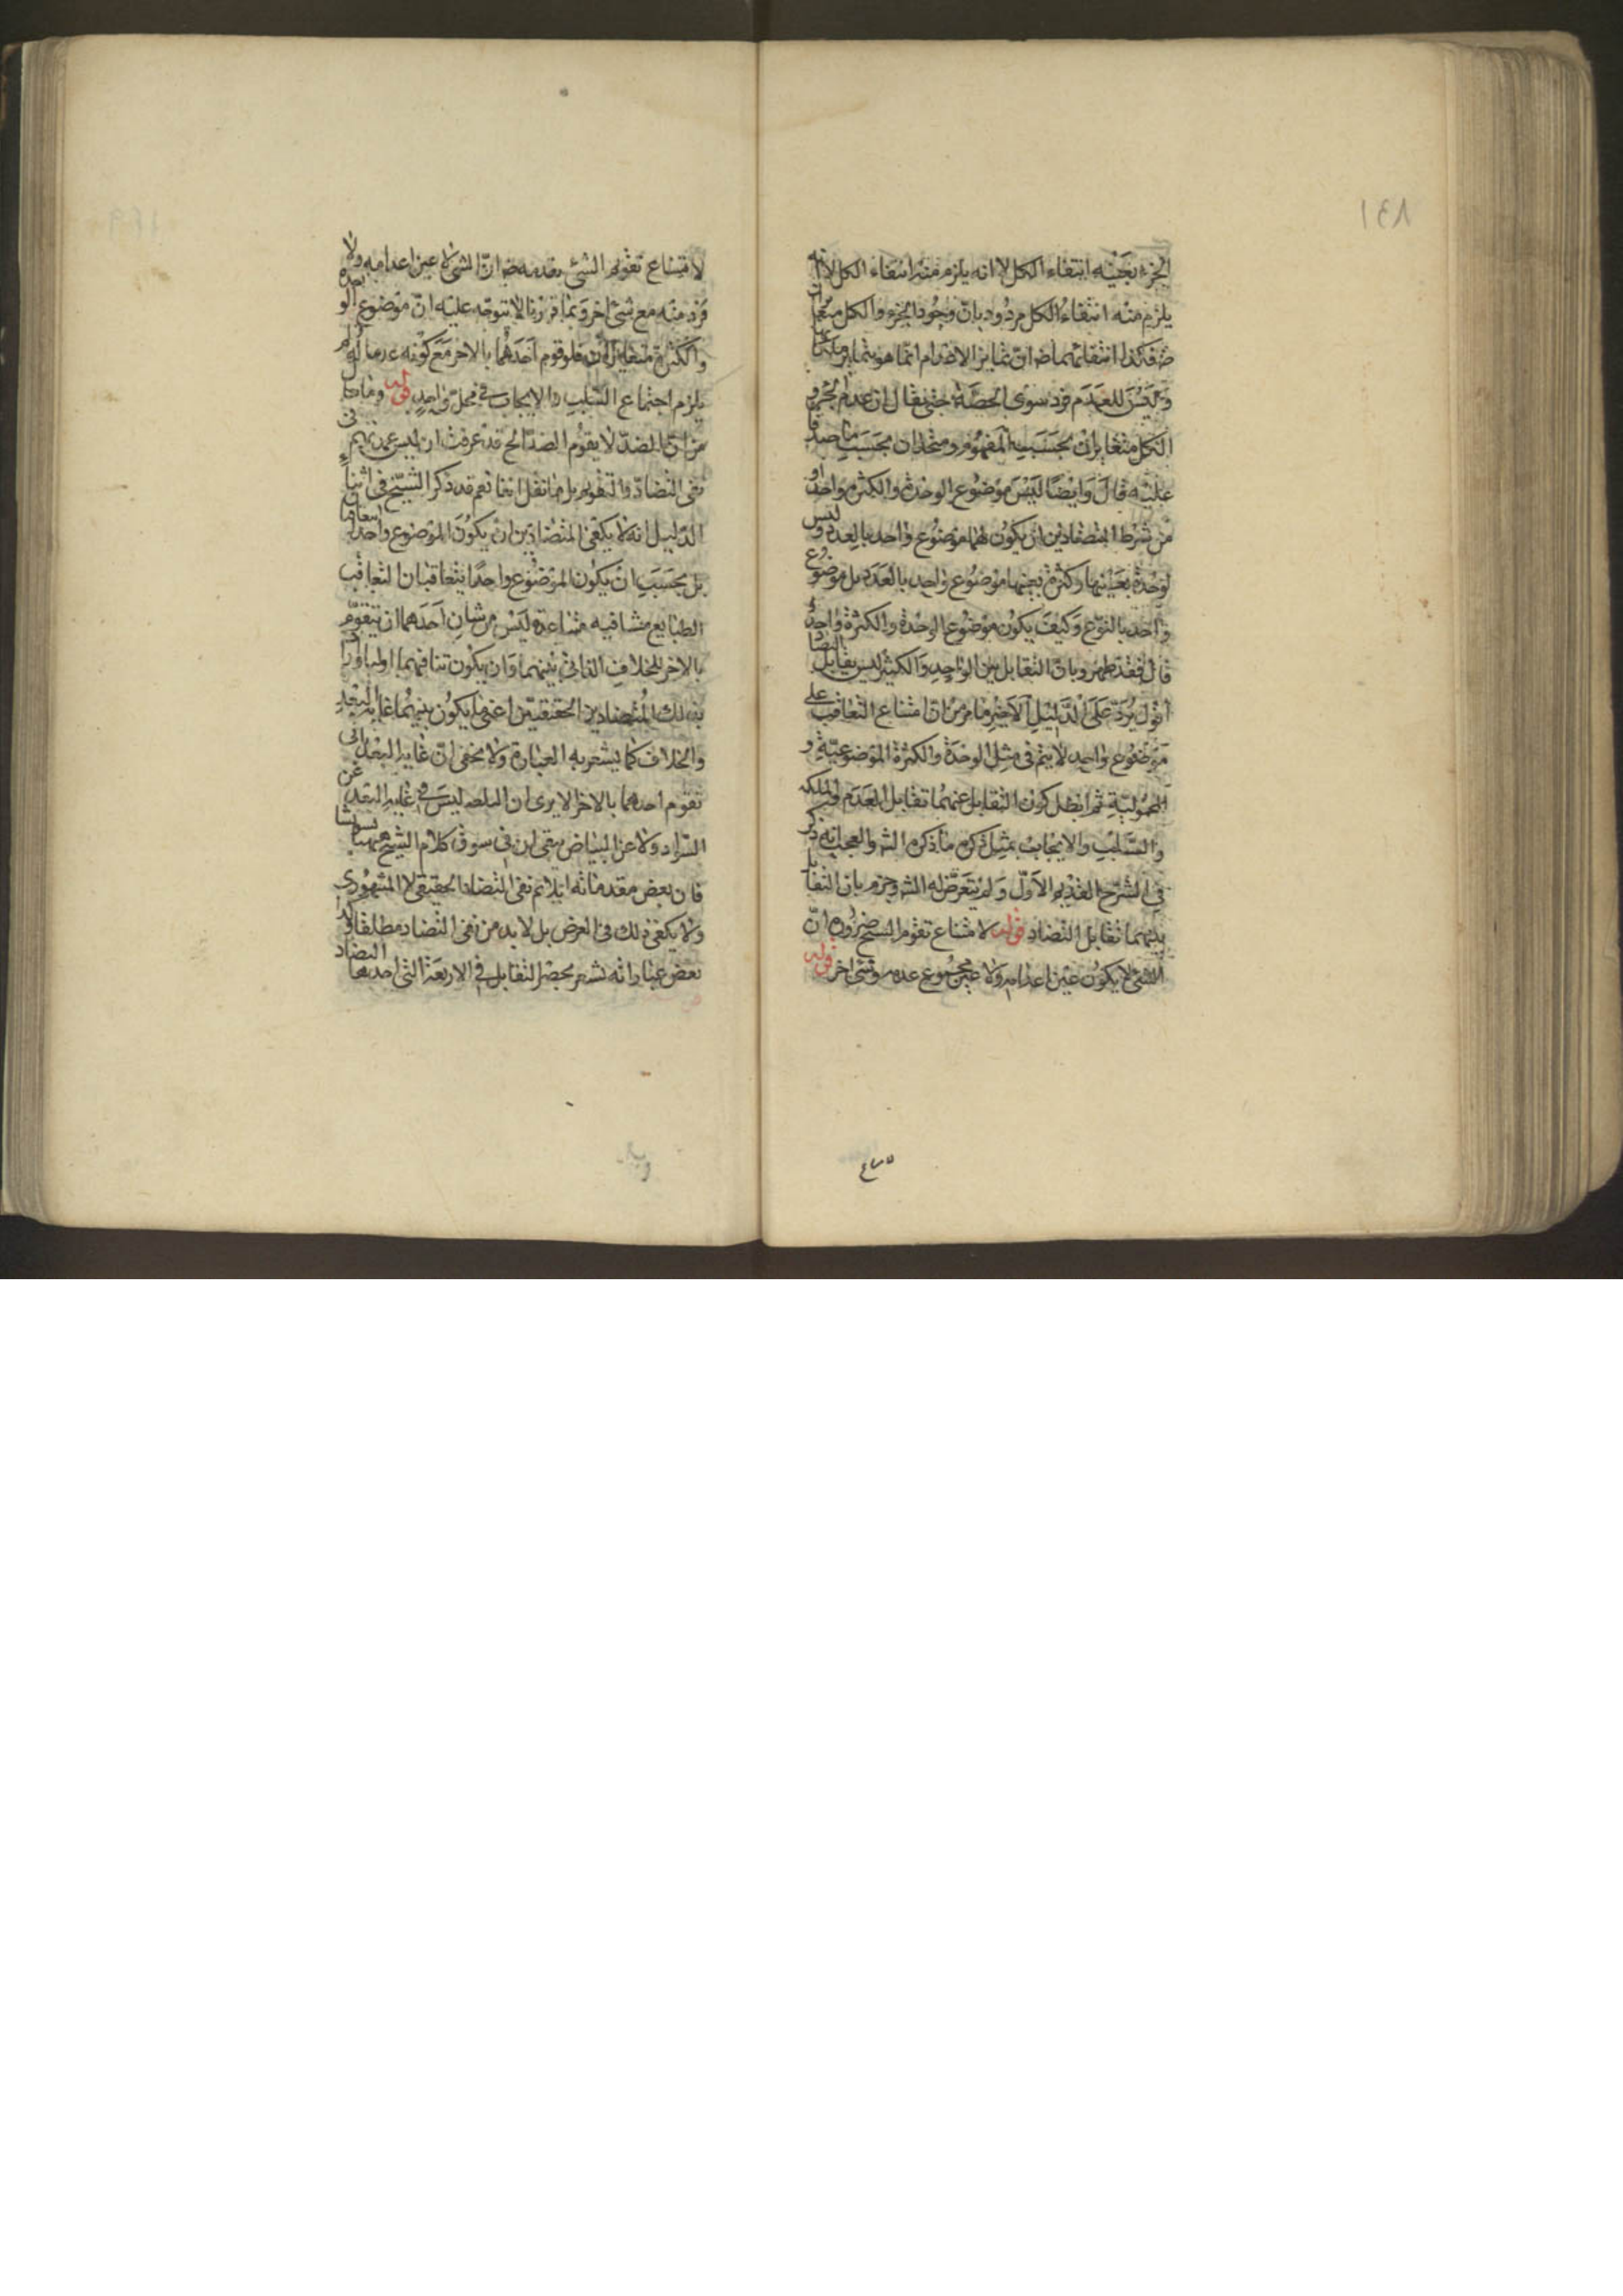 ١٤٨
الجزء بعينه انتفاء الكل لا انه يلزم منه انتفاء الكل لانه
يلزم منه انتفاء الكل مردود بان وجود الجزء والكل متغايران
فكذا انتفائهما ضه ان تمايز الاعدام انما هو بتمايز ملكاتها
وليس للعدم فرد سوى الحصة حتى يقال ان عدم الجزء و
الكل متغايران بحسب المفهوم ومتحدان بحسب ما صدقا
عليه قال وايضا ليس موضوع الوحدة والكثرة واحدا و
من شرط المتضادين ان يكون لهما موضوع واحد بالعدد وليس
لوحدة بعينها وكثرة بعينها موضوع واحد بالعدد بل موضوع
واحد بالنوع وكيف يكون موضوع الوحدة والكثرة واحدا
قال فقد ظهر وبان التقابل بين الواحد والكثير ليس بتقابل التضاد
اقول يرد على الدليل الاخير ما مر من ان امتناع التعاقب على
موضوع واحد لا يتم في مثل الوحدة والكثرة الموضوعية و
المحمولية ثم ابطل كون التقابل عنهما تقابل العدم والملكة
والسلب والايجاب بمثل ما ذكره الش والعجب انه ذكر
في الشرح القديم الاول ولم يتعرض له الش وجزم بان التقابل
بينهما تقابل التضاد قوله لامتناع تقوم الشيء ضرورة ان
الشي لا يكون عين اعدامه ولا عين مجموع عدمه وشي اخر قوله
لامتناع تقويم الشي بعدمه ضه ان الشي لا عين اعدامه ولا
فرد منه مع شي اخر وبما قررنا لا يتوجه عليه ان موضوع الوحدة
والكثرة متغايران فلو قوم احدهما بالاخر مع كونه عدما له لم
يلزم اجتماع السلب والايجاب في محل واحد قوله وما
من ان الضد لا يقوم الضد الخ قد عرفت ان ليس عمدتهم في
نفي التضاد والتقويم بل ما نقل انفا نعم قد ذكر الشيخ في اثناء
الدليل انه لا يكفي المتضادين ان يكون الموضوع واحدا
بل بحسب ان يكون الموضوع واحدا يتعاقبان التعاقب
الطبايع متنافية متباعدة ليس من شان احدهما ان يتقوم
بالاخر للخلاف الذاتي بينهما وان يكون تنافيهما اوليا واراد
بذلك المتضادين الحقيقيين اعني ما يكون بينهما غاية البعد
والخلاف كما يشعر به العبارة ولا يخفى ان غاية البعد
تقوم احدهما بالاخر الا يرى ان ليس في غاية البعد عن
السواد ولا عن البياض بقي ان في سوق كلام الشيخ
فان بعض مقدماته انما يلائم نفي التضاد الحقيقي لا المشهوري
ولا يكفي ذلك في الغرض بل لا بد من نفي التضاد مطلقا
بعض عباراته يشعر بحصر التقابل في الاربعة التي احدها التضاد